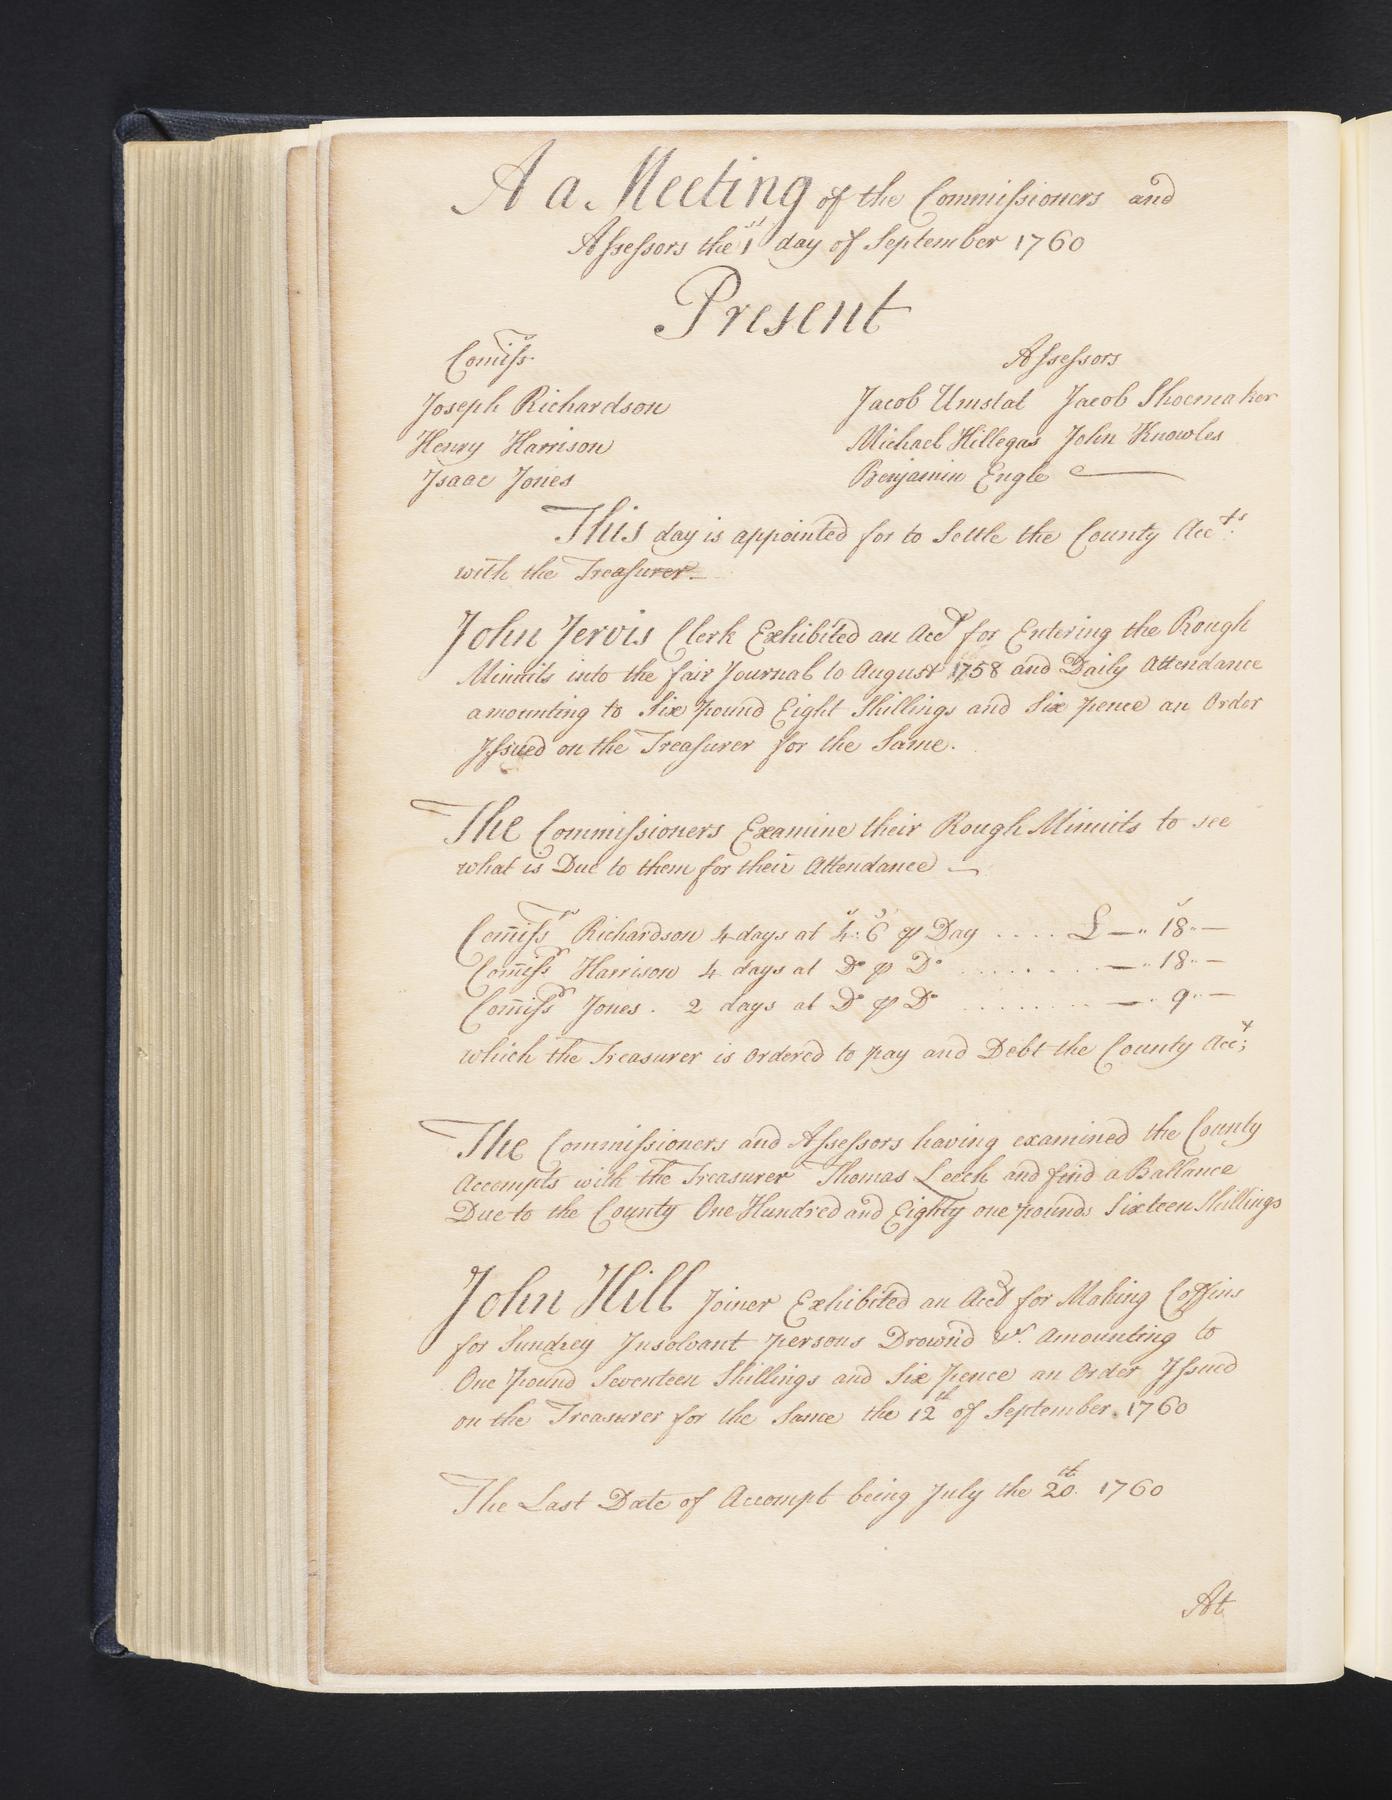 A a Meeting of the Commissioners and
Assessors the 1st day of September 1760
Present
Comiss.rs
Assessors
Joseph Richardson
Jacob Umstat Jacob Shoemaker
Henry Harrison
Michael Hillegas John Knowles
Isaac Jones
Benjamin Engle
This day is appointed for to Settle the County Acc.ts
with the Treasurer
John Jervis Clerk Exhibited an Acct for Entering the Rough
Minuits into the fair Journal to August 1758 and Daily Attendance
amounting to Six pound Eight Shillings and Six pence an Order
Issued on the Treasurer for the Same.
The Commissioners Examine their Rough Minuits to see
what is Due to them for their Attendance —
Comissrs Richardson 4 days at 4s:6d ⅌ Day .... £ —" 18"—
Comissr Harrison 4 days at Do ⅌ Do ........ —" 18"—
Comissr Jones. 2 days at Do ⅌ Do ........ —" 9"—
which the Treasurer is Ordered to pay and Debt the County Acct;
The Commissioners and Assessors having examined the County
Accompts with the Treasurer Thomas Leech and find a Ballance
Due to the County One Hundred and Eighty one pounds Sixteen Shillings
John Hill Joiner Exhibited an Acct for Making Coffins
for Sundrey Insolvant persons Drown'd &c. Amounting to
One Pound Seventeen Shillings and Six pence an Order Issued
on the Treasurer for the Same the 12th of September. 1760
The Last Date of Accompt being July the 20th. 1760
At